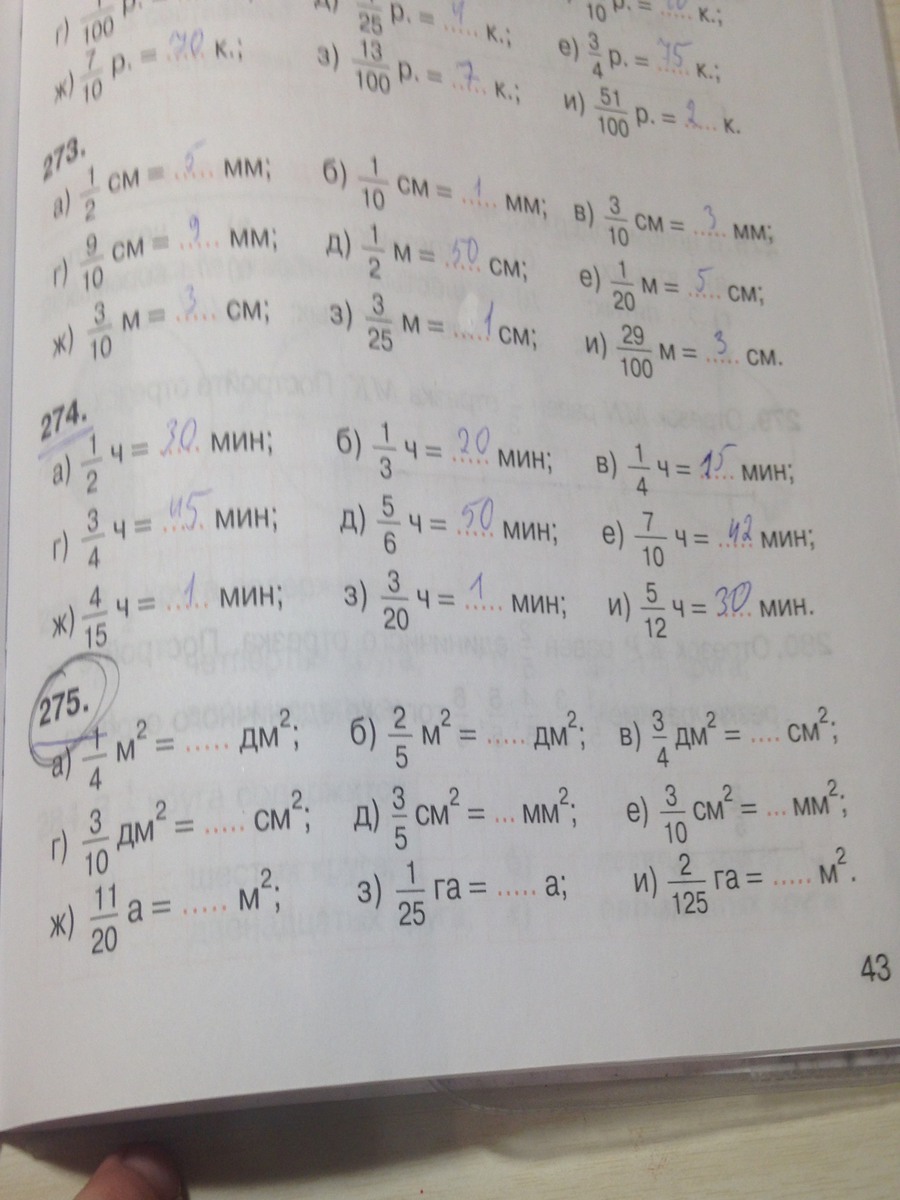 г) 1/100 р. = д) 1/25 р. = 4 к.; 10 р. = к.;
ж) 7/10 р. = 70 к.; з) 13/100 р. = 7 к.; е) 3/4 р. = 75 к.;
и) 51/100 р. = 2 к.
273.
а) 1/2 см = 5 мм; б) 1/10 см = 1 мм; в) 3/10 см = 3 мм;
г) 9/10 см = 9 мм; д) 1/2 м = 50 см; е) 1/20 м = 5 см;
ж) 3/10 м = 3 см; з) 3/25 м = 1 см; и) 29/100 м = 3 см.
274.
а) 1/2 ч = 30 мин; б) 1/3 ч = 20 мин; в) 1/4 ч = 15 мин;
г) 3/4 ч = 45 мин; д) 5/6 ч = 50 мин; е) 7/10 ч = 42 мин;
ж) 4/15 ч = 1 мин; з) 3/20 ч = 1 мин; и) 5/12 ч = 30 мин.
275.
а) 1/4 м² = ..... дм²; б) 2/5 м² = ..... дм²; в) 3/4 дм² = .... см²;
г) 3/10 дм² = ..... см²; д) 3/5 см² = ... мм²; е) 3/10 см² = ... мм²;
ж) 11/20 а = ..... м²; з) 1/25 га = ..... а; и) 2/125 га = ..... м².
43